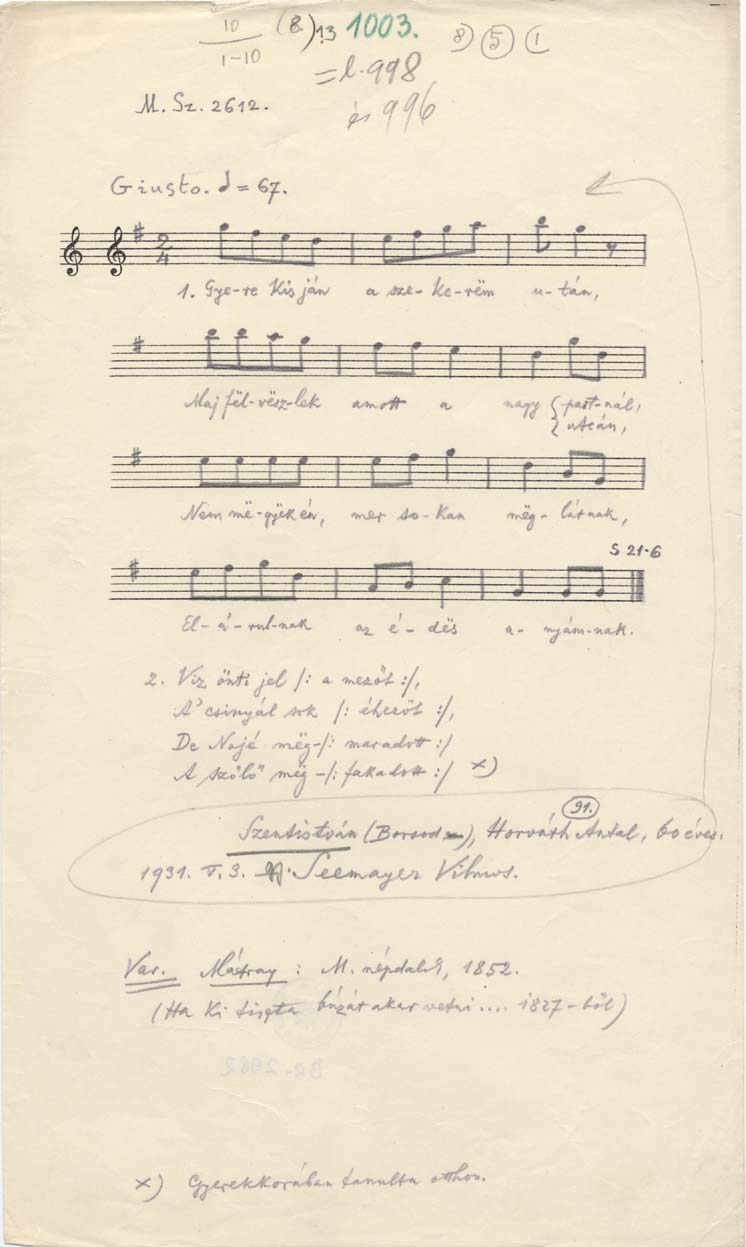 10 (8.) 13 1003. 8) 5 1
1-10
= l. 998
és 996
M. Sz. 2612.
Giusto. = 67.
2
4
1. Gye-re kis ján a sze-ke-rëm u-tán,
Maj fël-vësz-lek amott a nagy {part-nál,
{utcán,
Nem më-gyëk én, mer so-kan mëg-lát-nak,
S 21-6
El-á-rul-nak az é-dës a-nyám-nak.
2. Viz önti jel /: a mezőt :/,
A' csinyál sok /: éhezőt :/,
De Nojé mëg-/: maradott :/
A szőlő mëg-/: fakadott :/ x)
91.
Szentistván (Borsod), Horváth Antal, 60 éves.
1931. V. 3. Seemayer Vilmos.
Var. Mátray: M. népdalok, 1852.
(Ha ki tiszta búzát akar vetni.... 1827-ből)
x) Gyerekkorában tanulta otthon.